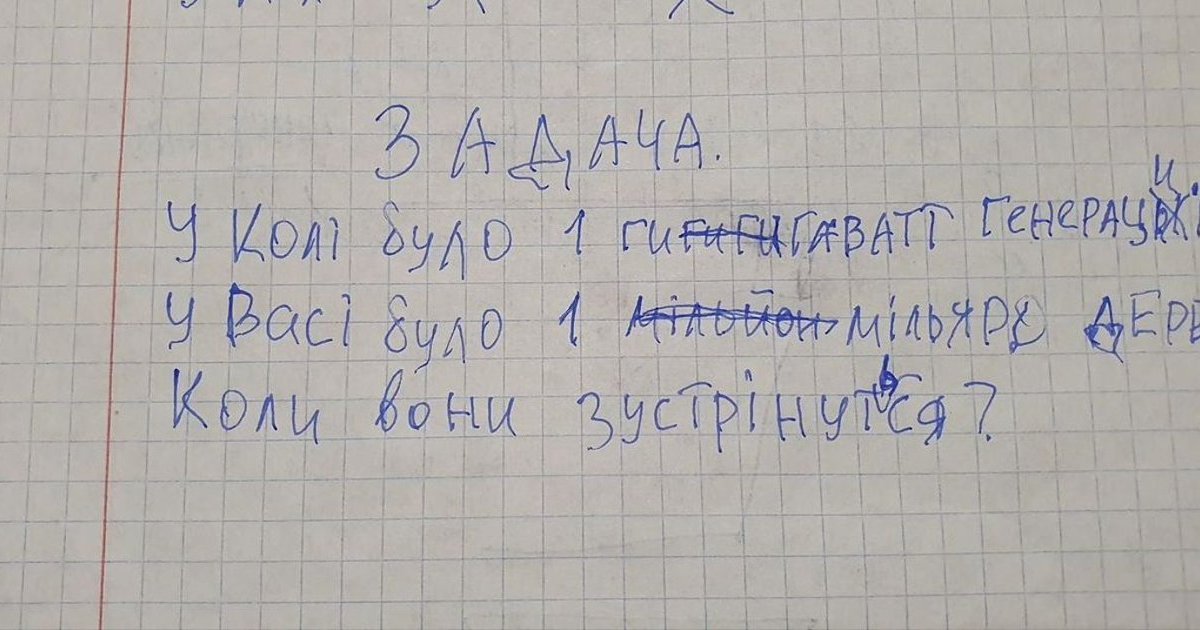 ЗАДАЧА.
У Колі було 1 гигаВАТТ ГенЕРАЦІ
У Васі було 1 мільярд ДЕРЕ
Коли вони зустрінуться?